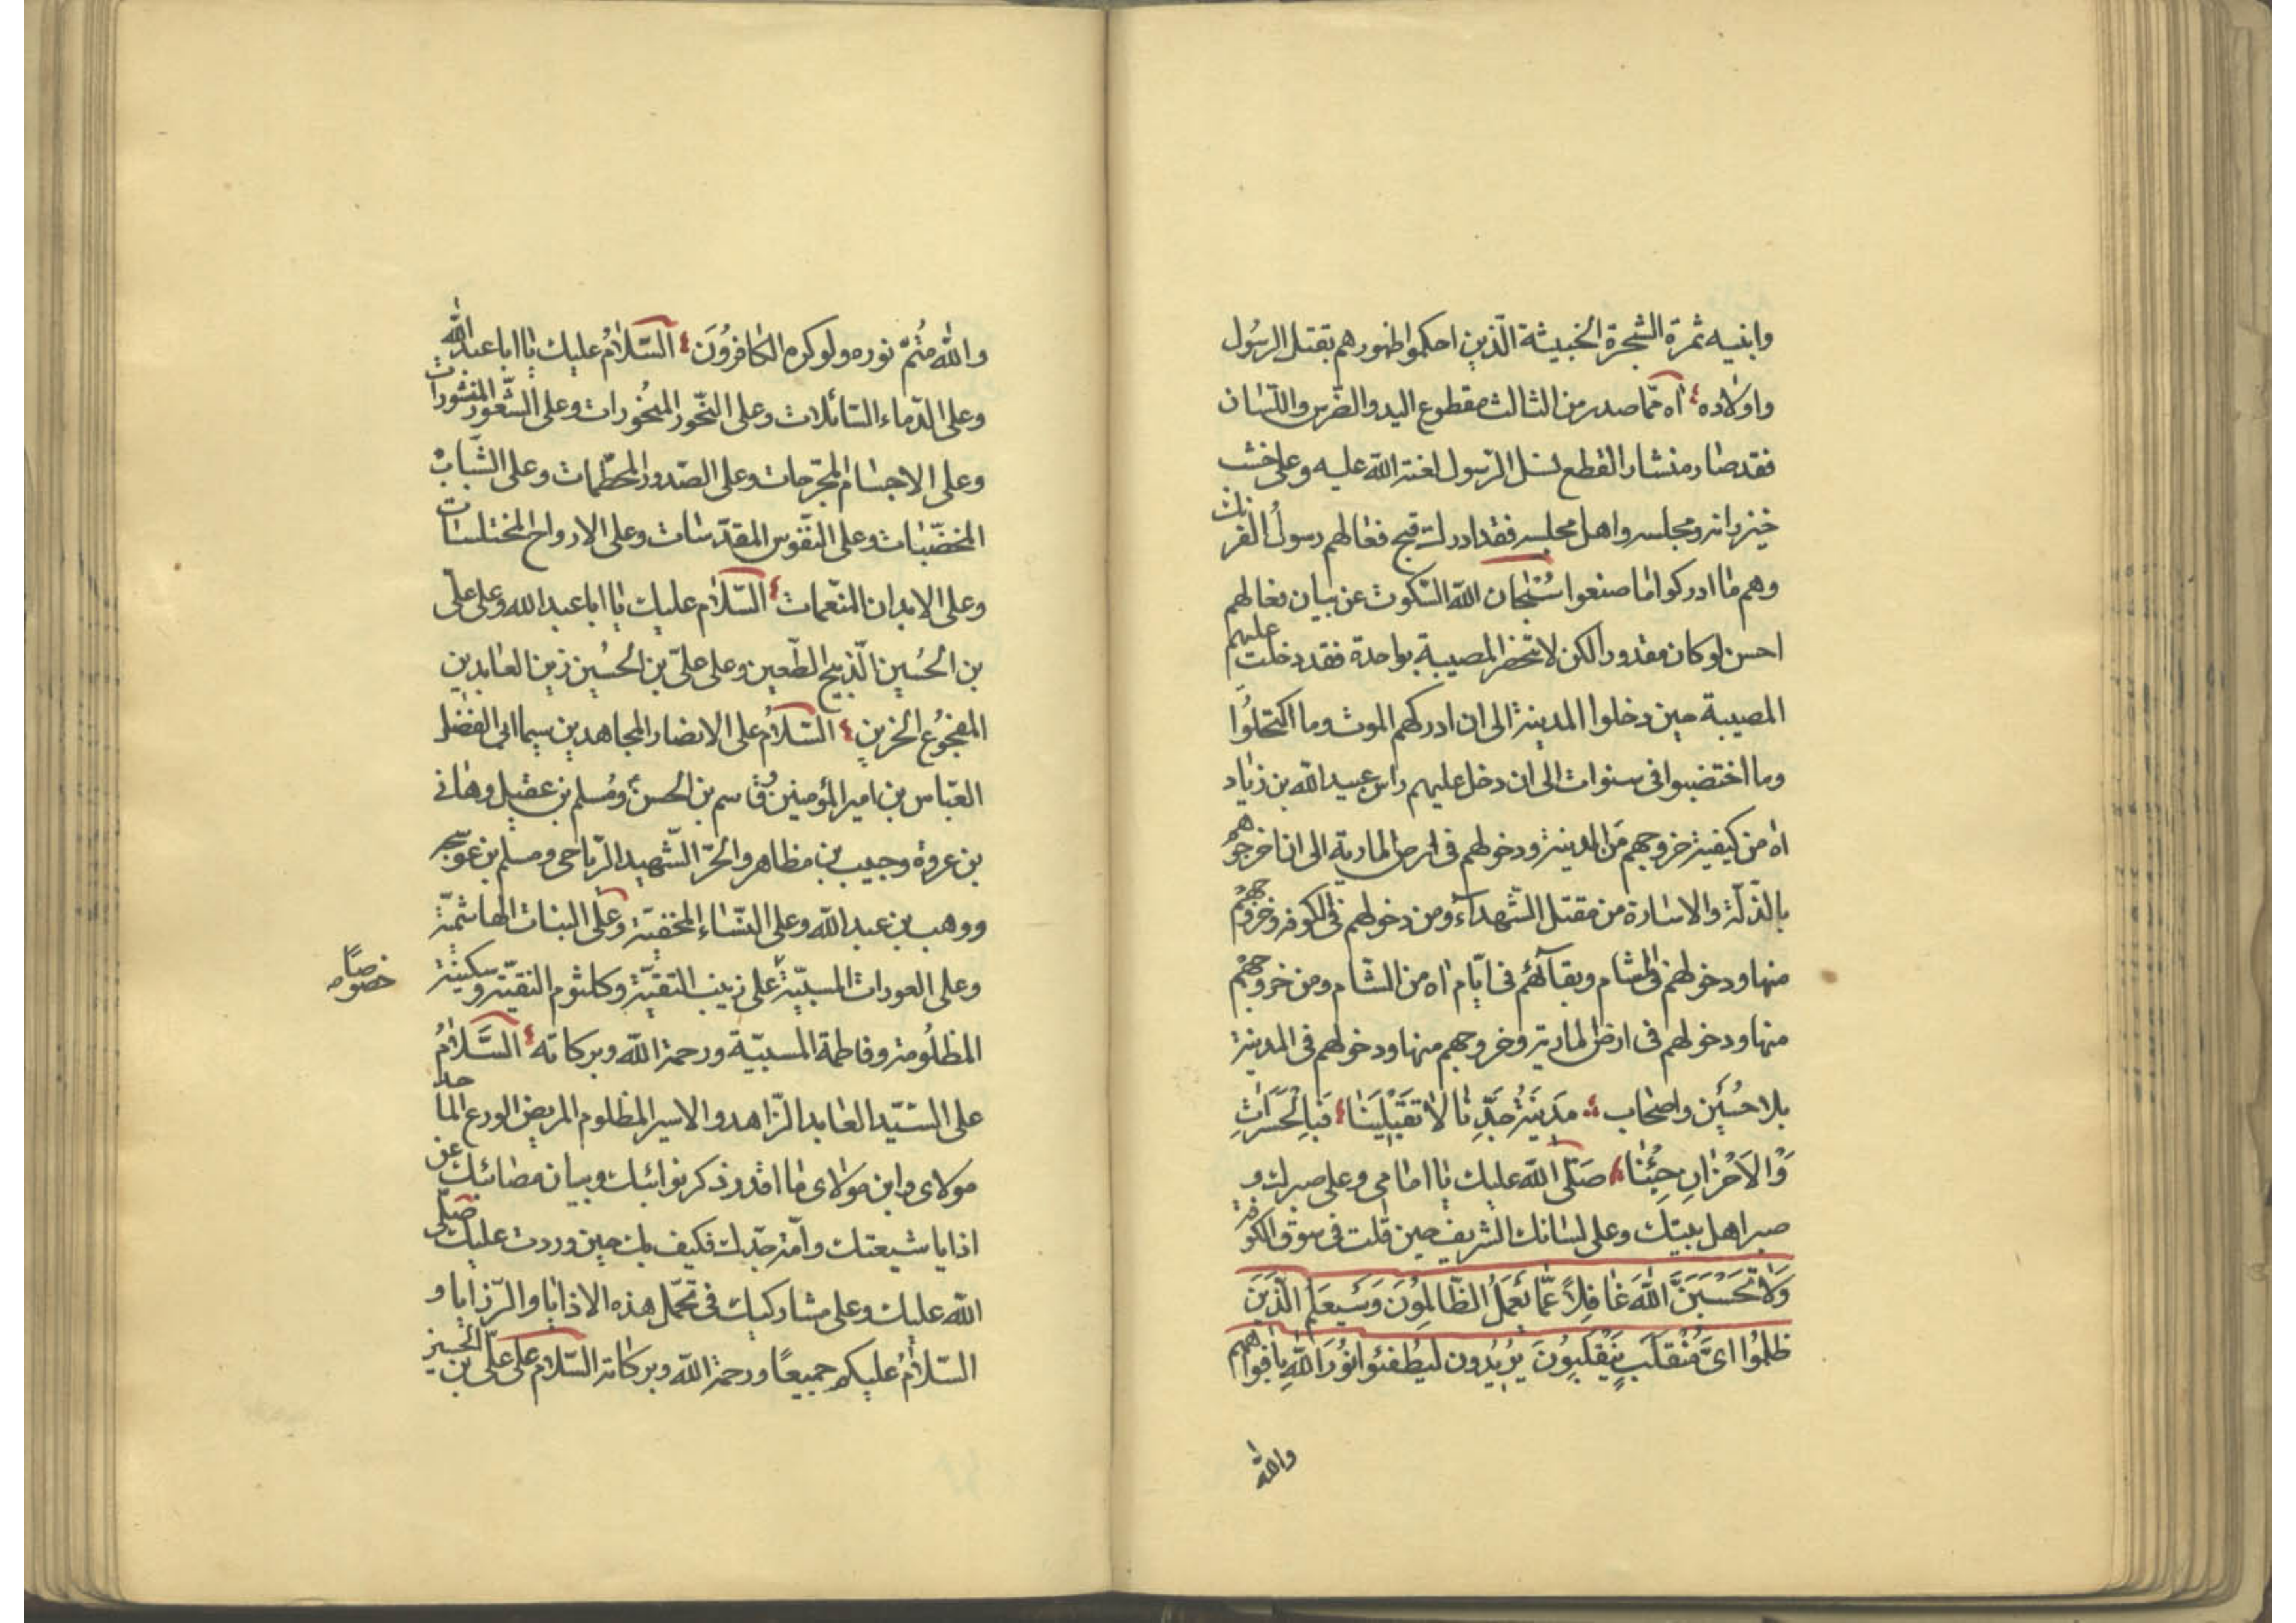 وابنيه ثمرة الشجرة الخبيثة الّذين احكموا ظهورهم بقتل الرسُول
واولاده آه ممّا صدر من الثالث مقطوع اليد والضّرس واللّسان
فقد صار منشار القطع لنسل الرّسول لعنة اللّه عليه وعلى خشب
خيزرانه ومجلسه واهل مجلسه فقد ادرك قبح فعالهم رسولُ الفرنك
وهم ما ادركوا ما صنعوا سُبْحان اللّه السّكوت عن بيان فعالهم
احسن لو كان مقدورا لكن لا تنحصر المصيبة بواحدة فقد دخلت عليهم
المصيبة حين دخلوا المدينة الى ان ادركهم الموت وما اكتحلُوا
وما اختضبوا فى سنوات الى ان دخل عليهم راس عبيد اللّه بن زياد
اه من كيفية خروجهم من المدينة ودخولهم فى ارض المارية الى ان اخرجوهم
بالذّلة والاسارة من مقتل الشّهداء ومن دخولهم فى الكوفه وخروجهم
منها ودخولهم فى الشام وبقآئهم فى ايّام اه من الشّام ومن خروجهم
منها ودخولهم فى ارض المارية وخروجهم منها ودخولهم فى المدينة
بلا حُسَين واصحاب مَدينَةُ جَدِّنا لا تقبَلينَا فبالحَسَراتِ
وَالاَحْزانِ جِئْنا صَلّى اللّه عليك يا امامى وعلى صبرك و
صبر اهل بيتك وعلى لسانك الشريف حين قلت فى سوق الكوفة
وَلا تَحْسَبَنَّ اللّهَ غافِلاً عَمّا يَعْمَلُ الظّالِمُونَ وَسَيَعلَمُ الّذَينَ
ظلمُوا اىَّ مُنْقَلَبٍ يَنْقَلِبُونَ يُريدُون ليُطفئوا نُورَ اللّهِ بافواههم
واللّه
واللّه مُتمّ نوره ولو كره الكافروُنَ السّلامُ عليك يا ابا عبد اللّه
وعلى الدّماء السّائلات وعلى النّحور المنحُورات وعلى الشّعور المنشورات
وعلى الاجسام المجرّحات وعلى الصّدور المحطّمات وعلى الشّباب
المخضّبات وعلى النّفوس المقدّسات وعلى الارواح المختلسات
وعلى الابدان المنعّمات السّلام عليك يا ابا عبد اللّه وعلى علىّ
بن الحُسَين الّذبيح الطّعين وعلى علىّ بن الحُسَين زين العابدين
المفجُوع الحزين السّلامُ على الانصار المجاهدين سيما ابى الفضل
العبّاس بن امير المؤمنين وقاسم بن الحسن ومُسلم بن عقيل وهانى
بن عروة وحبيب بن مظاهر والحُرّ الشّهيد الرّياحى ومسلم بن عوسجه
ووهب بن عبد اللّه وعلى النّساء المخفيّة وعلى البنات الهاشميّة
وعلى العورات المسبيّة على زينب التقيّة وكلثوم النقيّة وسكينة
خصوصًا
المظلُومة وفاطمة المسبيّة ورحمة اللّه وبركاته السَّلامُ
على السّيّد العابد الزّاهد والاسير المظلوم المريض الورع الماجد
مولاى وابن مولاى ما اقدر ذكر نوائبك وبيان مصائبك عن
اذايا شيعتك وامّة جدّك فكيف بك حين وردت عليك صلّى
اللّه عليك وعلى مشاركيك فى تحمّل هذه الاذايا والرّزايا و
السّلامُ عليكم جميعًا ورحمة اللّه وبركاته السّلام على علىّ بن الحسين